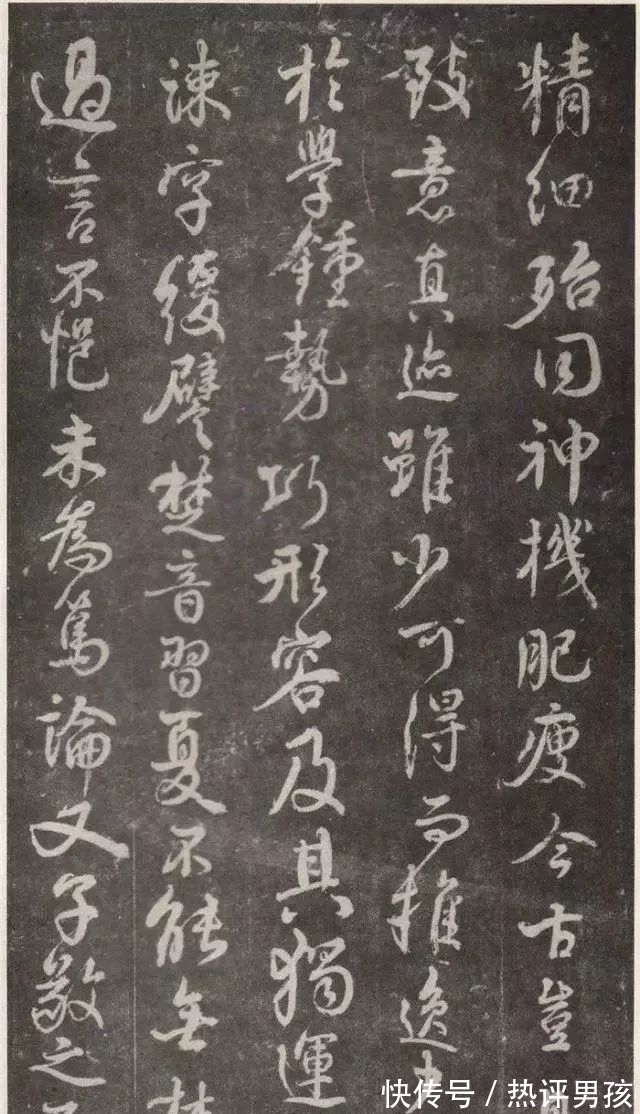 精細殆同神機肥瘦今古豈
致意真迹雖少可得而推逸少
於學鍾勢巧形容及其獨運
疎字緩譬楚音習夏不能無楚
過言不悒未為篤論又子敬之
快传号 / 热评男孩